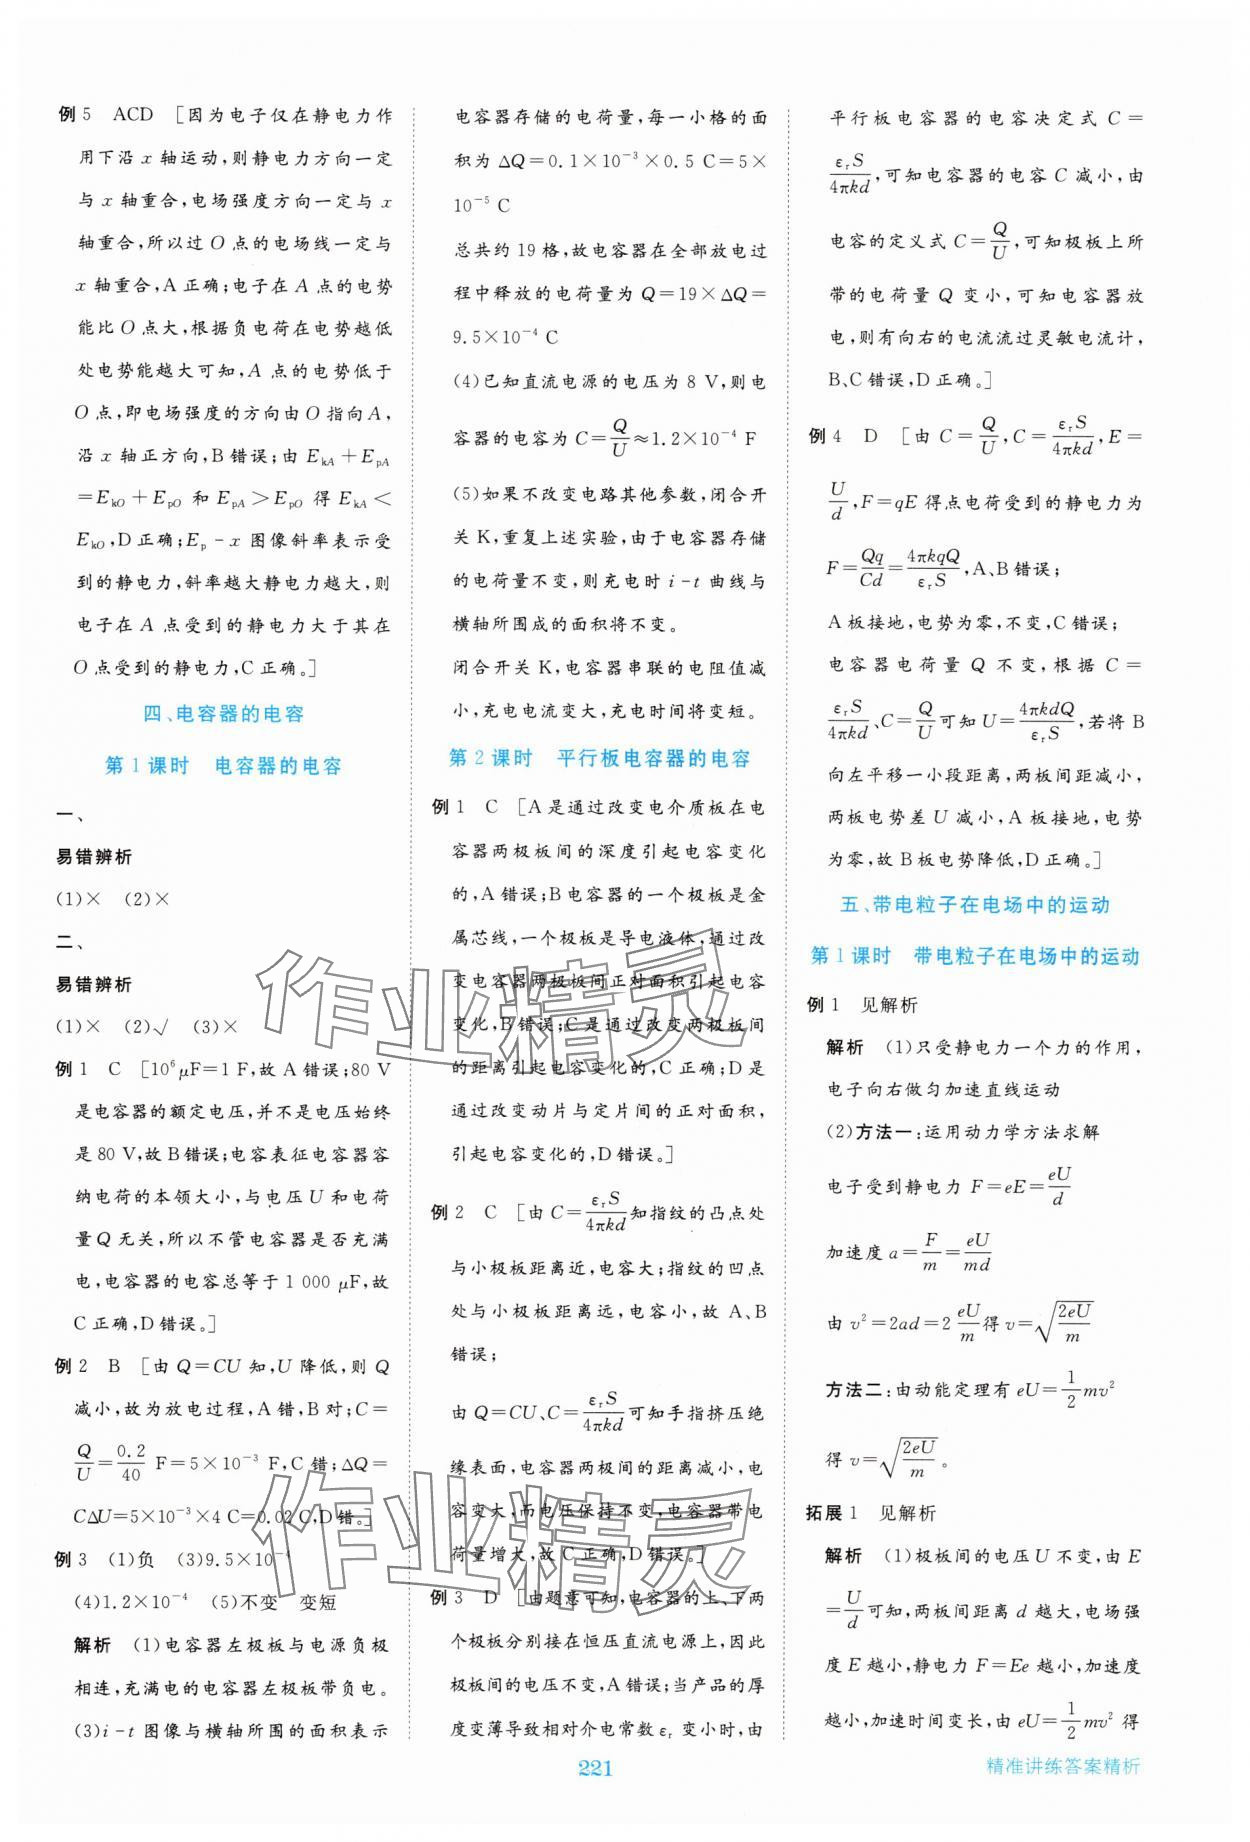 例 5　ACD　[因为电子仅在静电力作
用下沿 x 轴运动,则静电力方向一定
与 x 轴重合,电场强度方向一定与 x
轴重合,所以过 O 点的电场线一定与
x 轴重合,A 正确;电子在 A 点的电势
能比 O 点大,根据负电荷在电势越低
处电势能越大可知,A 点的电势低于
O 点,即电场强度的方向由 O 指向 A,
沿 x 轴正方向,B 错误;由 EkA＋EpA
＝EkO＋EpO 和 EpA＞EpO 得 EkA＜
EkO,D 正确;Ep－x 图像斜率表示受
到的静电力,斜率越大静电力越大,则
电子在 A 点受到的静电力大于其在
O 点受到的静电力,C 正确。]
四、电容器的电容
第 1 课时　电容器的电容
一、
易错辨析
(1)×　(2)×
二、
易错辨析
(1)×　(2)√　(3)×
例 1　C　[10⁶ μF＝1 F,故 A 错误;80 V
是电容器的额定电压,并不是电压始终
是 80 V,故 B 错误;电容表征电容器容
纳电荷的本领大小,与电压 U 和电荷
量 Q 无关,所以不管电容器是否充满
电,电容器的电容总等于 1 000 μF,故
C 正确,D 错误。]
例 2　B　[由 Q＝CU 知,U 降低,则 Q
减小,故为放电过程,A 错,B 对;C＝
Q/U＝0.2/40 F＝5×10⁻³ F,C 错;ΔQ＝
CΔU＝5×10⁻³×4 C＝0.02 C,D 错。]
例 3　(1)负　(3)9.5×10⁻⁴
(4)1.2×10⁻⁴　(5)不变　变短
解析　(1)电容器左极板与电源负极
相连,充满电的电容器左极板带负电。
(3)i－t 图像与横轴所围的面积表示
电容器存储的电荷量,每一小格的面
积为 ΔQ＝0.1×10⁻³×0.5 C＝5×
10⁻⁵ C
总共约 19 格,故电容器在全部放电过
程中释放的电荷量为 Q＝19×ΔQ＝
9.5×10⁻⁴ C
(4)已知直流电源的电压为 8 V,则电
容器的电容为 C＝Q/U≈1.2×10⁻⁴ F
(5)如果不改变电路其他参数,闭合开
关 K,重复上述实验,由于电容器存储
的电荷量不变,则充电时 i－t 曲线与
横轴所围成的面积将不变。
闭合开关 K,电容器串联的电阻值减
小,充电电流变大,充电时间将变短。
第 2 课时　平行板电容器的电容
例 1　C　[A 是通过改变电介质板在电
容器两极板间的深度引起电容变化
的,A 错误;B 电容器的一个极板是金
属芯线,一个极板是导电液体,通过改
变电容器两极板间正对面积引起电容
变化,B 错误;C 是通过改变两极板间
的距离引起电容变化的,C 正确;D 是
通过改变动片与定片间的正对面积,
引起电容变化的,D 错误。]
例 2　C　[由 C＝εrS/4πkd 知指纹的凸点处
与小极板距离近,电容大;指纹的凹点
处与小极板距离远,电容小,故 A、B
错误;
由 Q＝CU、C＝εrS/4πkd 可知手指挤压绝
缘表面,电容器两极间的距离减小,电
容变大,而电压保持不变,电容器带电
荷量增大,故 C 正确,D 错误。]
例 3　D　[由题意可知,电容器的上、下两
个极板分别接在恒压直流电源上,因此
极板间的电压不变,A 错误;当产品的厚
度变薄导致相对介电常数 εr 变小时,由
平行板电容器的电容决定式 C＝
εrS/4πkd,可知电容器的电容 C 减小,由
电容的定义式 C＝Q/U,可知极板上所
带的电荷量 Q 变小,可知电容器放
电,则有向右的电流流过灵敏电流计,
B、C 错误,D 正确。]
例 4　D　[由 C＝Q/U,C＝εrS/4πkd,E＝
U/d,F＝qE 得点电荷受到的静电力为
F＝Qq/Cd＝4πkqQ/εrS,A、B 错误;
A 板接地,电势为零,不变,C 错误;
电容器电荷量 Q 不变,根据 C＝
εrS/4πkd、C＝Q/U 可知 U＝4πkdQ/εrS,若将 B
向左平移一小段距离,两板间距减小,
两板电势差 U 减小,A 板接地,电势
为零,故 B 板电势降低,D 正确。]
五、带电粒子在电场中的运动
第 1 课时　带电粒子在电场中的运动
例 1　见解析
解析　(1)只受静电力一个力的作用,
电子向右做匀加速直线运动
(2)方法一:运用动力学方法求解
电子受到静电力 F＝eE＝eU/d
加速度 a＝F/m＝eU/md
由 v²＝2ad＝2 eU/m 得 v＝√(2eU/m)
方法二:由动能定理有 eU＝1/2 mv²
得 v＝√(2eU/m)。
拓展 1　见解析
解析　(1)极板间的电压 U 不变,由 E
＝U/d 可知,两板间距离 d 越大,电场强
度 E 越小,静电力 F＝Ee 越小,加速度
越小,加速时间变长,由 eU＝1/2 mv² 得
作业精灵
作业精灵
221
精准讲练答案精析